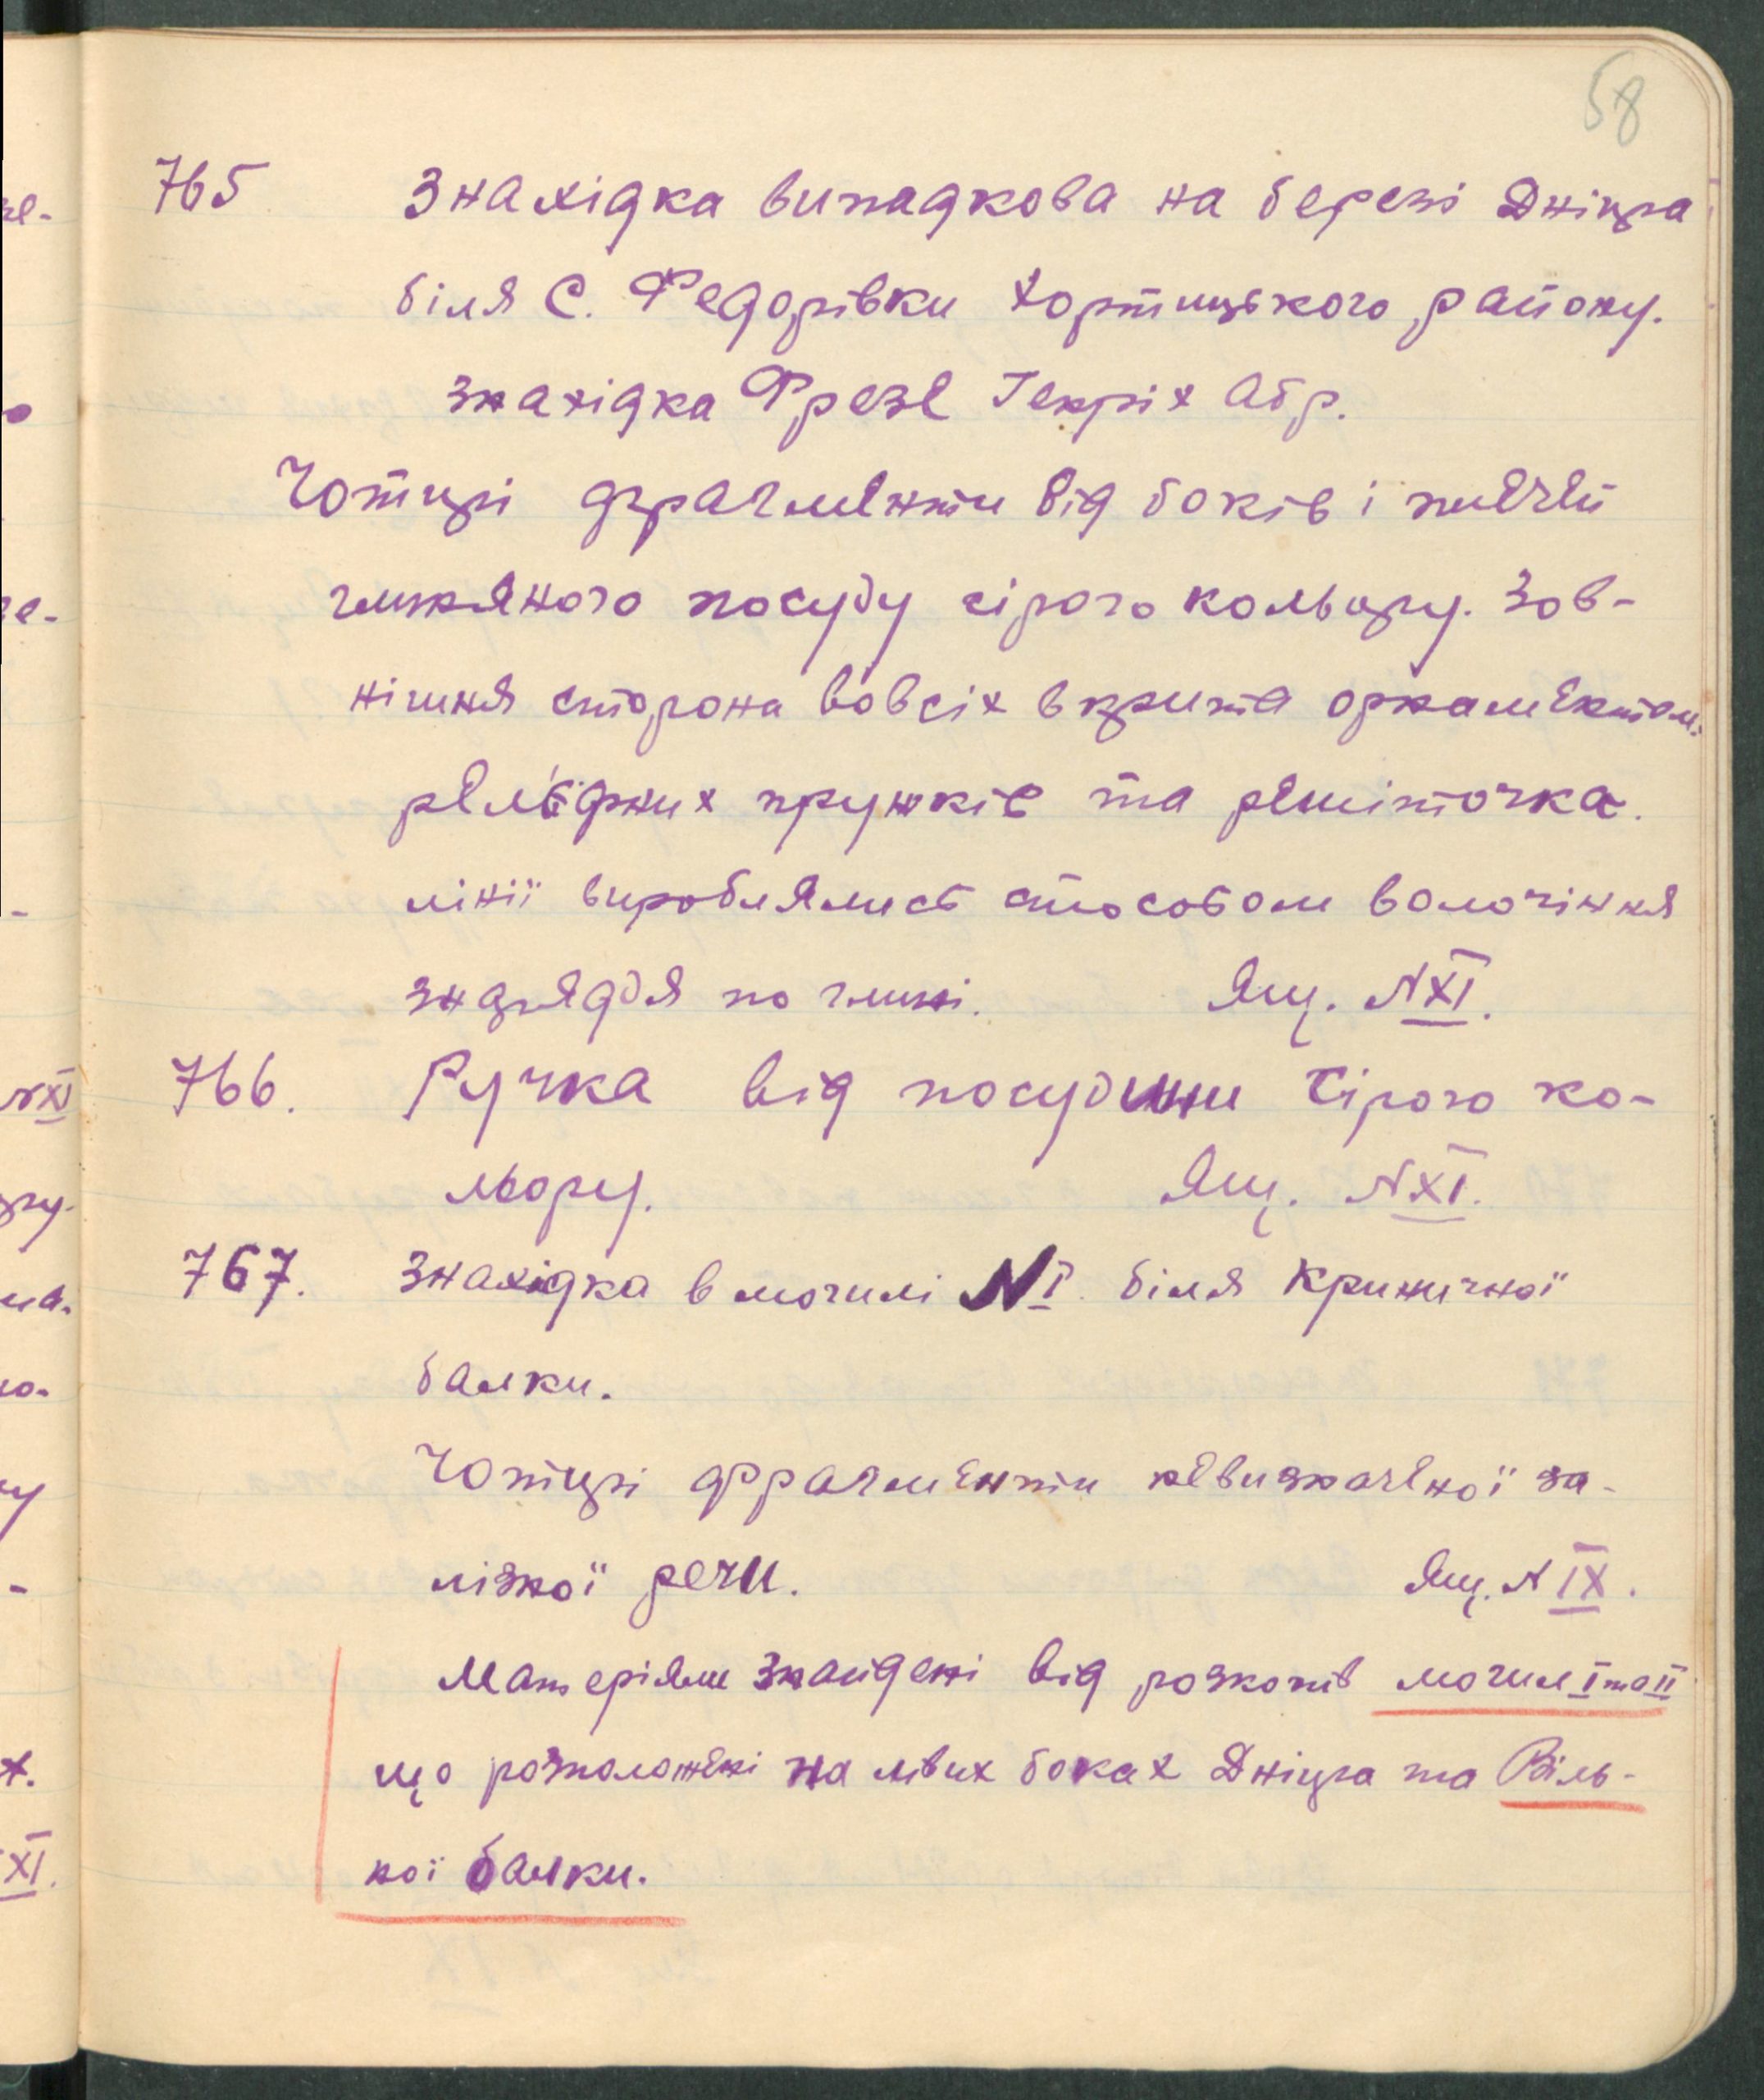 58
765 Знахідка випадкова на березі Дніпра
біля С. Федорівки Хортицького району.
знахідка Фрезе Генріх Абр.
Чотирі фрагменти від боків і плечей
глиняного посуду сірого кольору. Зов-
нішня сторона вовсіх вкрита орнаментом.
рельєфних пружків та решіточка.
лінії вироблялись способом волочіння
знаряддя по глині. Ящ. N XI.
766. Ручка від посудини сірого ко-
льору. Ящ. N XI.
767. Знахідка в могилі N I. біля Криничної
балки.
Чотирі фрагменти невизначеної за-
лізної речи. Ящ. N IX.
Матеріяли знайдені від розкопів могил I та II
що розположені на лівих боках Дніпра та Віль-
ної балки.